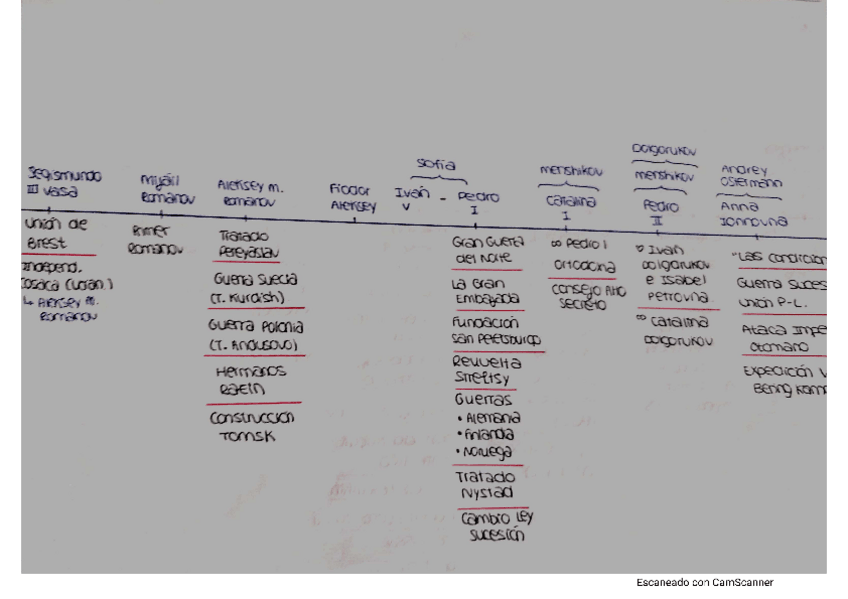 Segismundo
III Vasa
Unión de
Brest
Independ.
Cosaca (Ucran.)
↳ Aleksey M.
Romanov
Mijáil
Romanov
Primer
Romanov
Aleksey M.
Romanov
Tratado
Pereyaslav
Guerra Suecia
(T. Kurdish)
Guerra Polonia
(T. Andusovo)
Hermanos
Razin
Construcción
Tomsk
Fiodor
Aleksey
Sofía
Iván
V
-
Pedro
I
Gran Guerra
del Norte
La Gran
Embajada
Fundación
San Petersburgo
Revuelta
Streltsy
Guerras
• Alemania
• Finlandia
• Noruega
Tratado
Nystad
Cambio Ley
sucesión
Menshikov
Catalina
I
∞ Pedro I
Ortodoxia
Consejo Alto
Secreto
Dolgorukov
Menshikov
Pedro
II
♡ Iván
Dolgorukov
e Isabel
Petrovna
∞ Catalina
Dolgorukov
Andrey
Ostermann
Anna
Ionnovna
"Las condicion
Guerra Suces
Unión P-L.
Ataca Impe
Otomano
Expedición V
Bering Kam
Escaneado con CamScanner